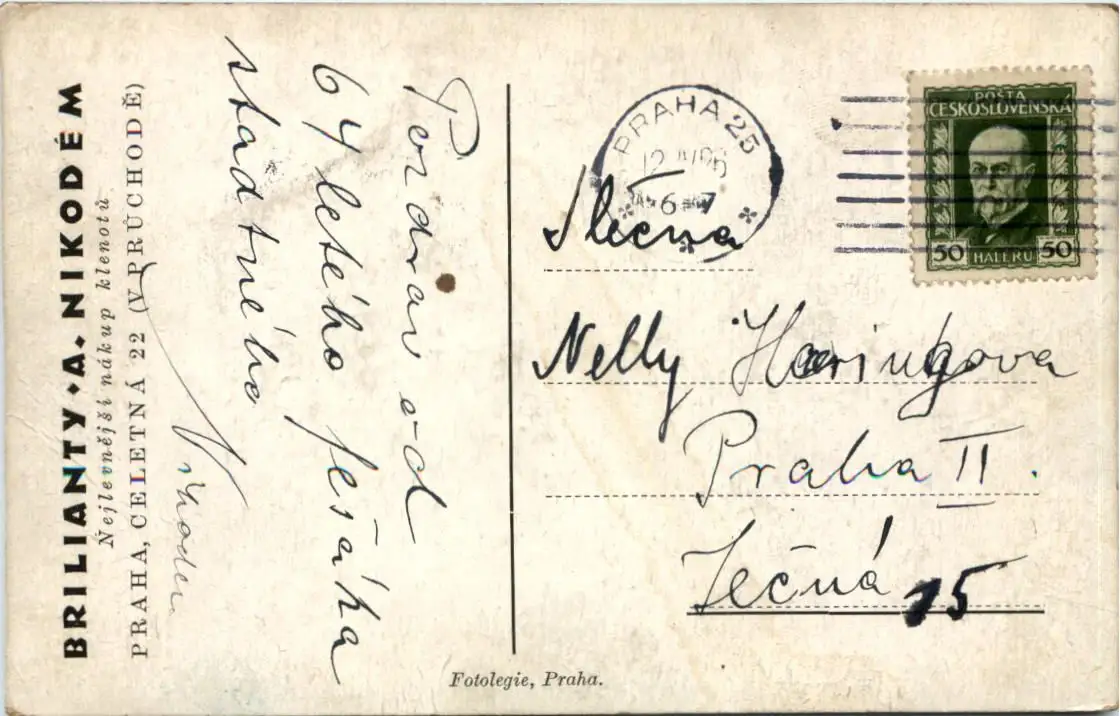 BRILIANTY • A. NIKODÉM
Nejlevnější nákup klenotů
PRAHA, CELETNÁ 22 (V PRŮCHODĚ)
Pozdrav od
64 letého fešáka
statného
Fotolegie, Praha.
PRAHA 25
12
6
POŠTA
ČESKOSLOVENSKÁ
50 HALÉŘŮ 50
Slečna
Nelly Haringova
Praha II.
Ječná 15